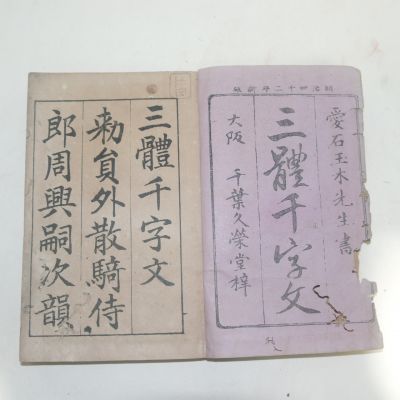 明治四十二年新鐫
愛石玉木先生書
三體千字文
大阪 千葉久榮堂梓
三體千字文
勅員外散騎侍
郎周興嗣次韻